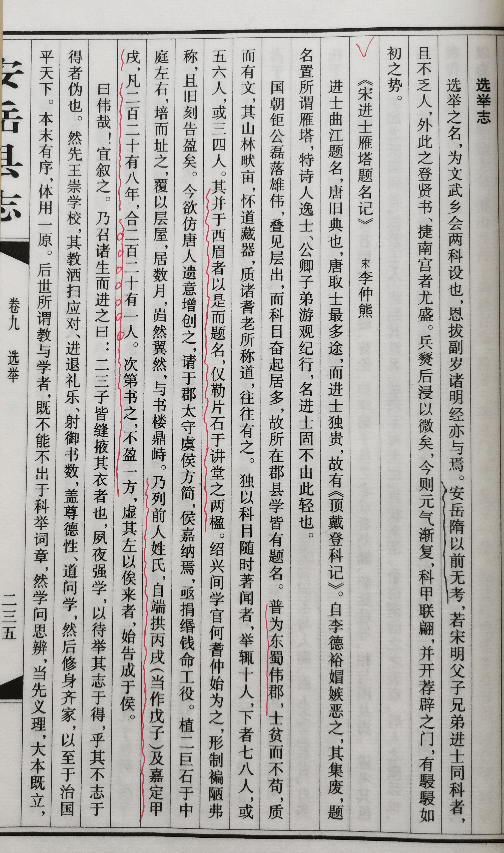 选举志
选举之名，为文武乡会两科设也，恩拔副岁诸明经亦与焉。安岳隋以前无考，若宋明父子兄弟进士同科者，
且不乏人，外此之登贤书、捷南宫者尤盛。兵燹后浸以微矣，今则元气渐复，科甲联翩，并开荐辟之门，有駸駸如
初之势。
《宋进士雁塔题名记》 宋 李仲熊
进士曲江题名，唐旧典也，唐取士最多途，而进士独贵，故有《顶戴登科记》。自李德裕媢嫉恶之，其集废，题
名置所谓雁塔，特诗人逸士、公卿子弟游观纪行，名进士固不由此轻也。
国朝钜公磊落雄伟，叠见层出，而科目奋起居多，故所在郡县学皆有题名。普为东蜀伟郡，士贫而不苟，质
而有文，其山林畎亩，怀道藏器，质诸耆老所称道，往往有之。独以科目随时著闻者，举辄十人，下者七八人，或
五六人，或三四人。其并于西眉者以是而题名，仅勒片石于讲堂之两楹。绍兴间学官何耆仲始为之，形制褊陋弗
称，且旧刻告盈矣。今欲仿唐人遗意增创之，请于郡太守虞侯方简，侯嘉纳焉，亟捐缗钱命工役。植二巨石于中
庭左右，培而址之，覆以层屋，居数月，岿然翼然，与书楼鼎峙。乃列前人姓氏，自端拱丙戌（当作戊子）及嘉定甲
戌，凡二百二十有八年，合二百二十有一人。次第书之，不盈一方，虚其左以俟来者，始告成于侯。
曰伟哉！宜叙之。乃召诸生而进之曰：二三子皆缝掖其衣者也，夙夜强学，以待举其志于得，乎其不志于
得者伪也。然先王崇学校，其教洒扫应对、进退礼乐、射御书数，盖尊德性、道问学，然后修身齐家，以至于治国
平天下。本末有序，体用一原。后世所谓教与学者，既不能不出于科举词章，然学问思辨，当先义理，大本既立，
安岳县志
卷九 选举
二三五